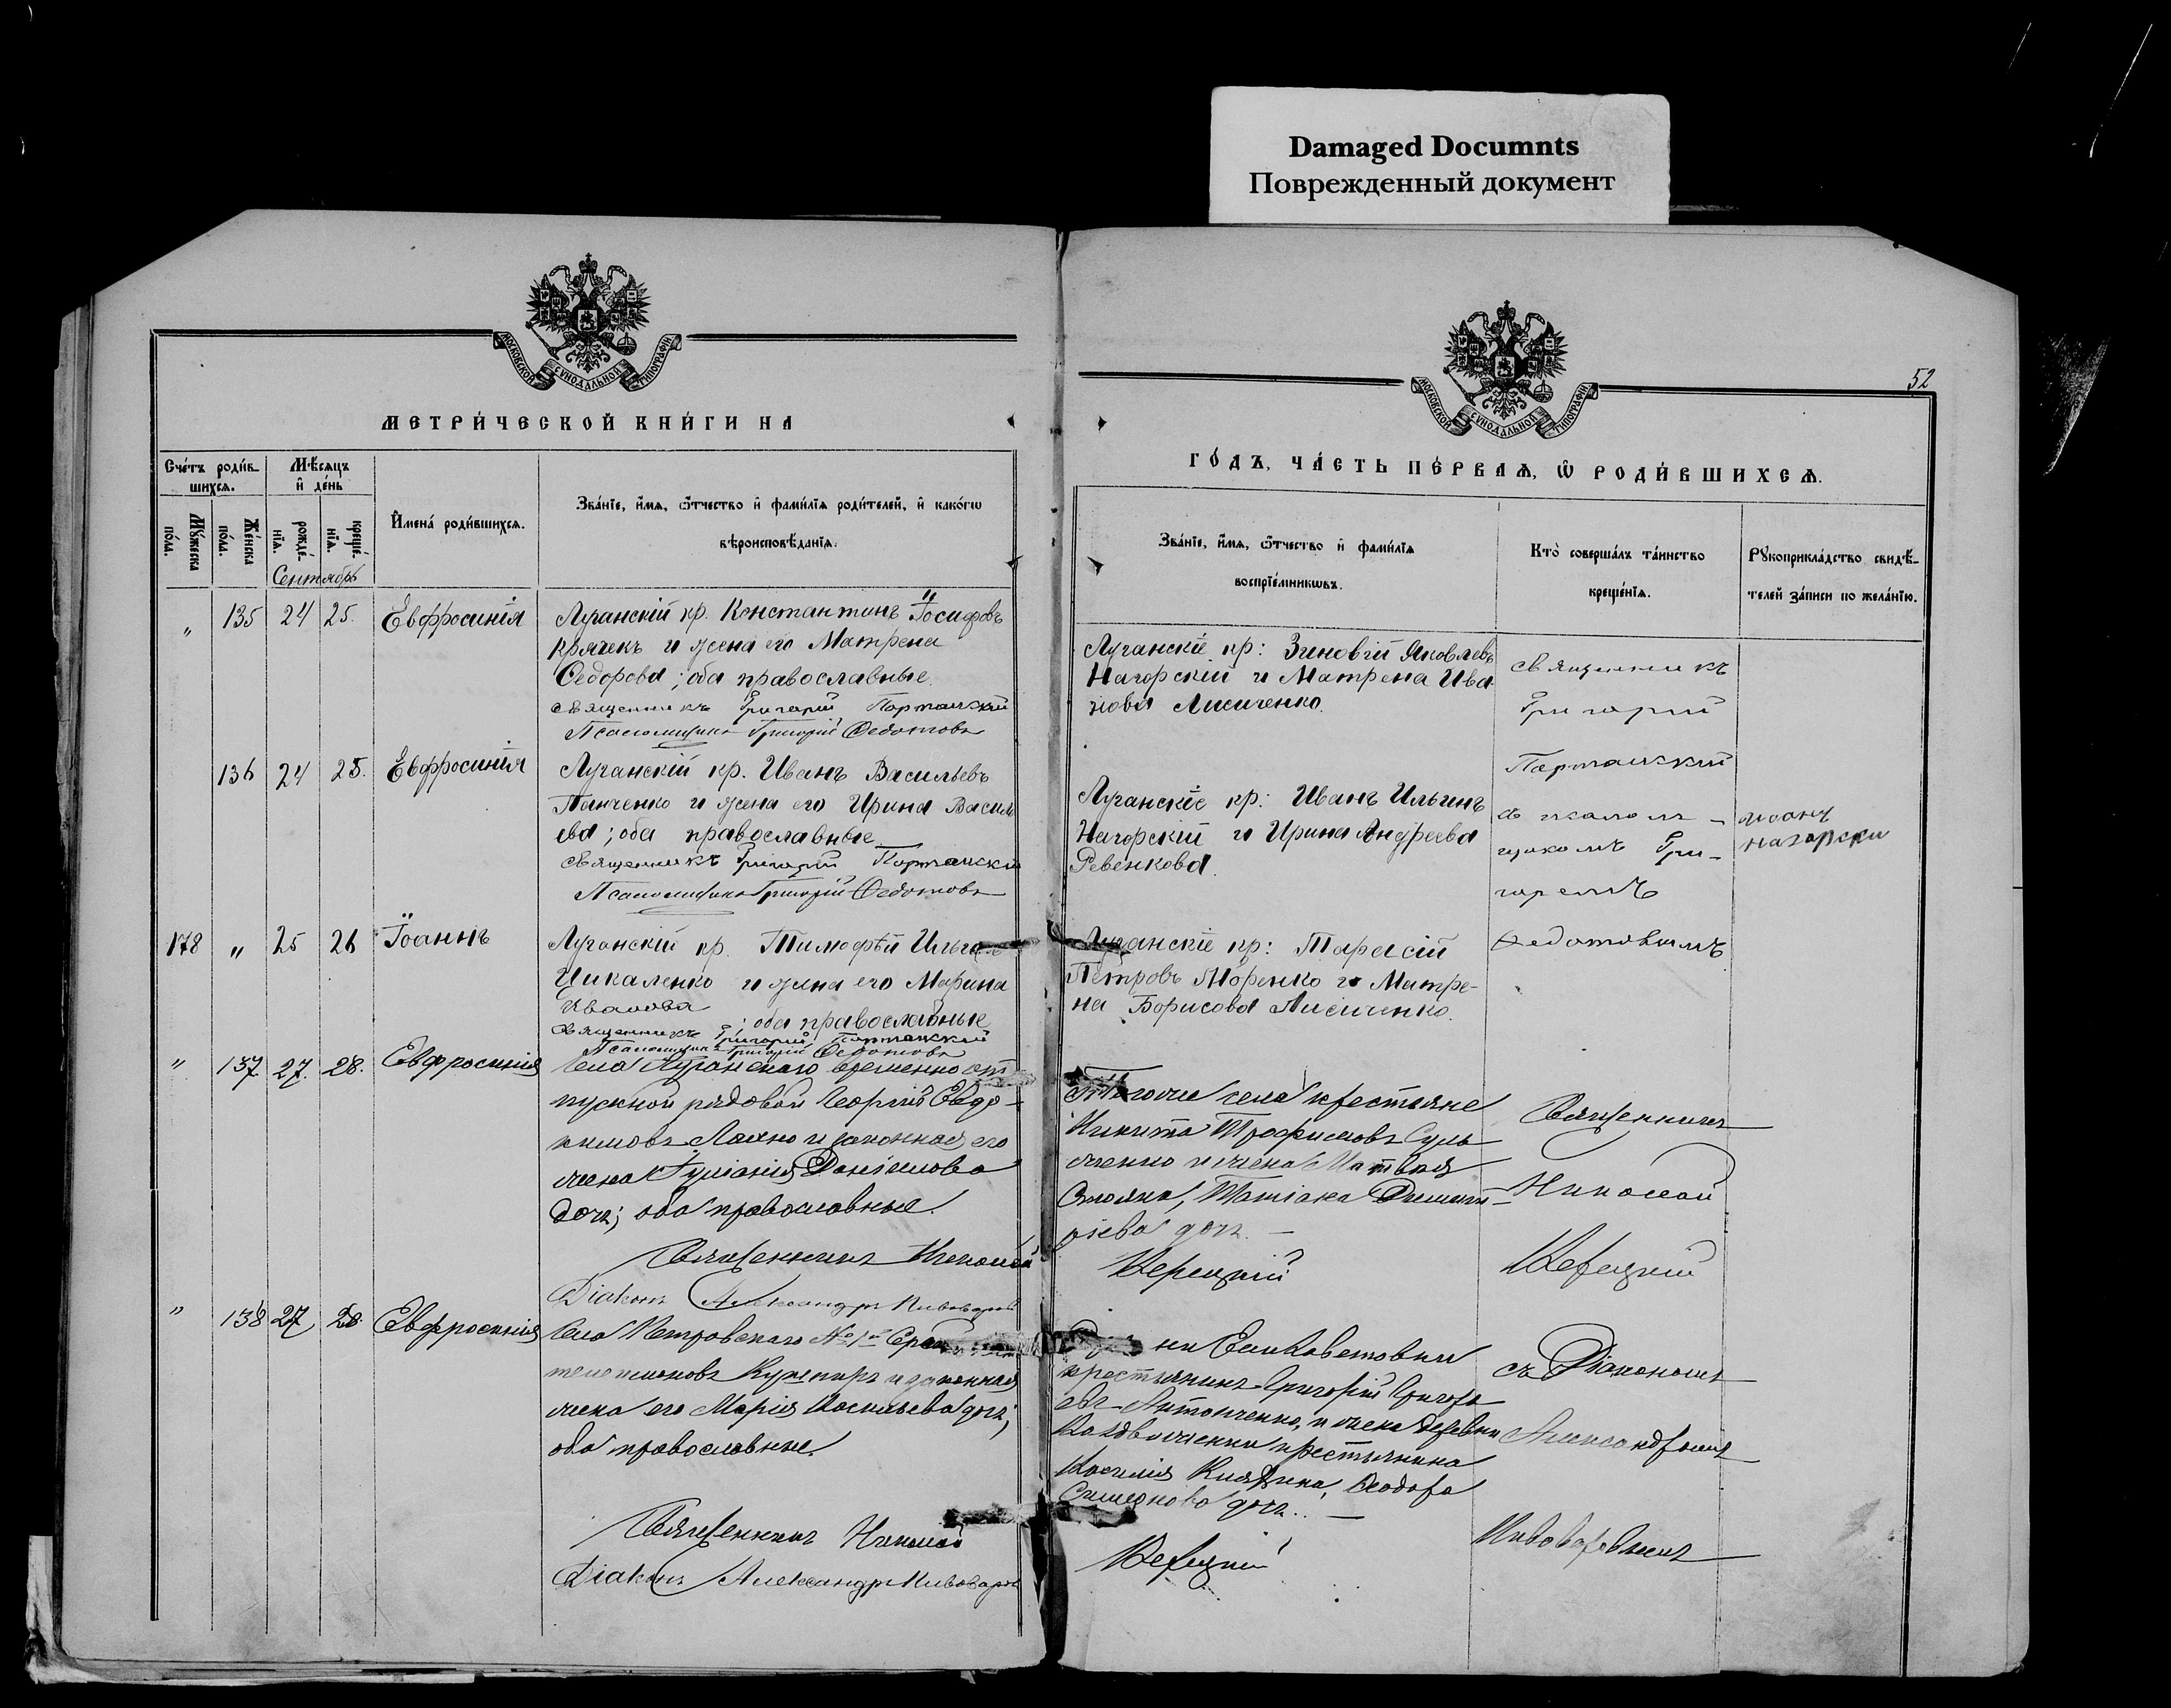 Damaged Documnts
Поврежденный документ
МОСКОВСКОЙ СѴНОДАЛЬНОЙ ТИПОГРАФІИ
МЕТРИ́ЧЕСКОЙ КНИ́ГИ НА
Сче́тъ роди́вшихся.
Мѣ́сяцъ и де́нь
Му́жеска по́ла.
Же́нска по́ла.
рожде́нїѧ.
креще́нїѧ.
Имена̀ роди́вшихсѧ.
Зва́нїе, и́мѧ, ѿчество и фами́лїѧ роди́телей, и како́гѡ
вѣроисповѣ́данїѧ.
Сентябрь
" 135 24 25. Евфросинія
Луганскій кр. Константинъ Іосифовъ
Крячекъ и жена его Матрена
Ѳедорова; оба православные.
Священникъ Григорій
Псаломщикъ Григорій Ѳедотовъ
136 24 25. Евфросинія
Луганскій кр. Иванъ Васильевъ
Панченко и жена его Ирина Василь
ева; оба православные
Священникъ Григорій
Псаломщикъ Григорій Ѳедотовъ
178 " 25 26 Іоаннъ
Луганскій кр. Тимофѣй
Цикаленко и жена его Марина
Иванова
; оба православные
Священникъ Григорій
Псаломщикъ Григорій Ѳедотовъ
" 137 27. 28. Евфросинія
Села Луганскаго временно от
пускной рядовой Георгій Евдо-
кимовъ и законная его
жена Іуліанія Даніилова
дочь; оба православные.
Священникъ Николай
Діаконъ Александръ Пивоваровъ
" 138 27 28. Евфросинія
Села Петровскаго № 1й
и законная
жена его Марія Васильева дочь;
оба православные.
Священникъ Николай
Діаконъ Александръ Пивоваровъ
52
МОСКОВСКОЙ СѴНОДАЛЬНОЙ ТИПОГРАФІИ
ГО́ДЪ, ЧА́СТЬ ПЕ́РВАѦ, Ѡ РОДИ́ВШИХСѦ.
Зва́нїе, и́мѧ, ѿчество и фами́лїѧ
воспрїе́мникѡвъ.
Кто̀ соверша́лъ та́инство
креще́нїѧ.
Рꙋкоприкла́дство свидѣ́-
телей за́писи по жела́нїю.
Луганскіе кр: Зиновій Яковлевъ
Нагорскій и Матрена Ива
нова Лисиченко.
Священникъ
Григорій
Луганскіе кр: Иванъ Ильинъ
Нагорскій и Ирина Андреева
Ревенкова.
съ псалом-
щикомъ Гри-
горіемъ
Ѳедотовымъ
Иоанъ
нагорски
Луганскіе кр: Тарасій
Петровъ Моренко и Матре-
на Борисова Лисиченко.
села крестьяне
Никита Трофимовъ
и жена Матвѣя
Татіана Димит-
ріева дочь. —
Верецкій
Священникъ
Николай
Верецкій
Елисаветовки
крестьянинъ Григорій Григорь
евъ Антонченко, и жена деревни
крестьянина
Василія Ѳеодора
Симеонова дочь. —
Верецкій
съ Діакономъ
Александромъ
Пивоваровымъ